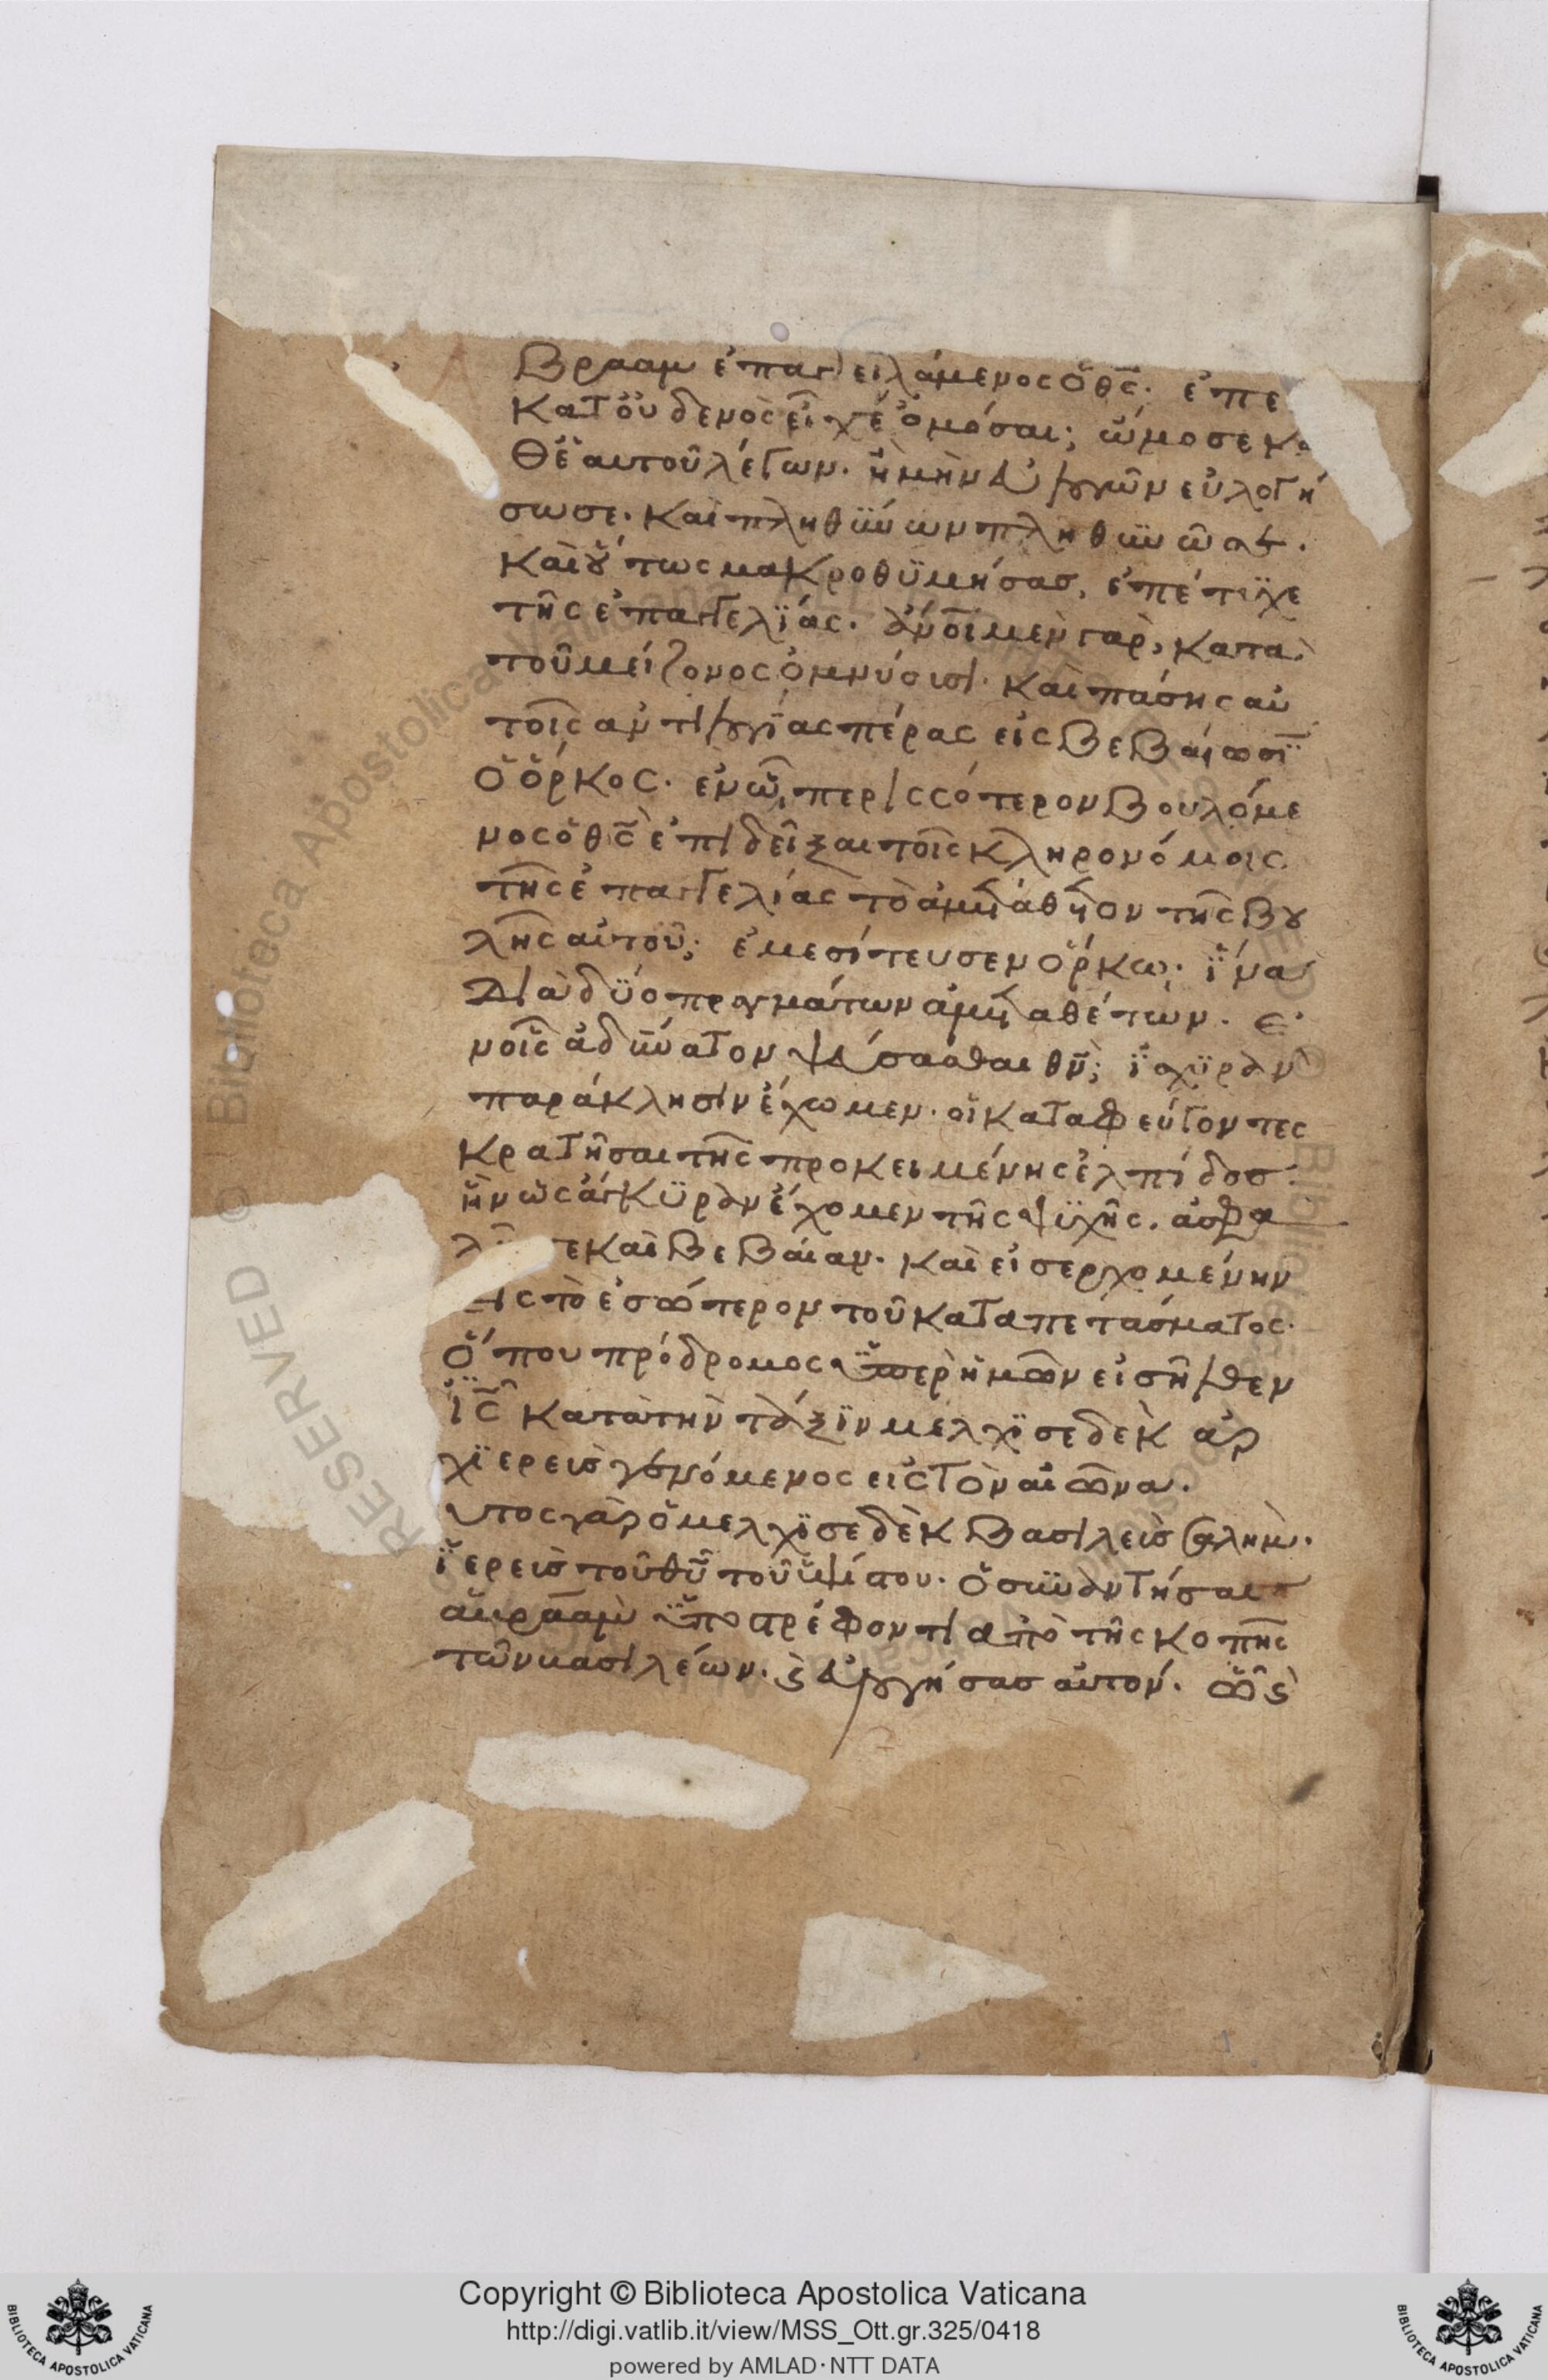 Βρααμ ἐπαγγειλάμενος ὁ θς̅. ἐπε
κατ οὐδενὸς εἶχε ὀμόσαι; ὤμοσε κα
θἑαυτοῦ λέγων. ἢ μὴν εὐλογῶν εὐλογή
σω σε. καὶ πληθϋνων πληθϋνῶ σε.
καὶ οὕτως μακροθϋμήσας, ἐπέτϋχε
τῆς ἐπαγγελϊας. ἀνοι μὲν γὰρ, κατὰ
τοῦ μείζονος ὀμνύουσι. καὶ πάσης αὐ
τοῖς ἀντιλογϊας πέρας εἰς βεβαίωσϊ
ὁ ὅρκος. ἐν ὧ, περισσότερον βουλόμε
νος ὁ θς̅ ἐπιδεῖξαι τοῖς κληρονόμοις
τῆς ἐπαγγελίας τὸ ἀμετάθετον τῆς βου
λῆς αὐτοῦ; ἐμεσίτευσεν ὅρκω; ἵνα
διὰ δϋο πραγμάτων ἀμεταθέτων. ἐ
νοῖς ἀδϋνατον ψεύσασθαι θν̅; ἰσχϋρὰν
παράκλησιν ἔχωμεν. οἱ καταφεύγοντες
κρατῆσαι τῆς προκειμένης ἐλπίδος.
ἣν ὡς ἄγκϋρὰν ἔχομεν τῆς ψϋχῆς. ἀσφα
λῆ τε καὶ βεβαίαν. καὶ εἰσερχομένην
εἰς τὸ ἐσώτερον τοῦ καταπετάσματος.
ὅπου πρόδρομος ὑπὲρ ἡμῶν εἰσῆλθεν
ις̅ κατὰ τὴν τάξϊν μελχϊσεδὲκ ἀρ
χϊερεὺς γενόμενος εἰς τὸν αἰῶνα.
υτος γὰρ ὁ μελχϊσεδὲκ βασιλεὺς σαλὴμ.
ἱερεὺς τοῦ θυ̅ τοῦ ὑψίστου. ὁ σϋναντήσας
ἀβραὰμ ὑποστρέφοντι ἀπὸ τῆς κοπῆς
τῶν βασιλέων. ϛ εὐλογήσας αὐτόν. ὧ ϛ
Copyright © Biblioteca Apostolica Vaticana
http://digi.vatlib.it/view/MSS_Ott.gr.325/0418
powered by AMLAD·NTT DATA